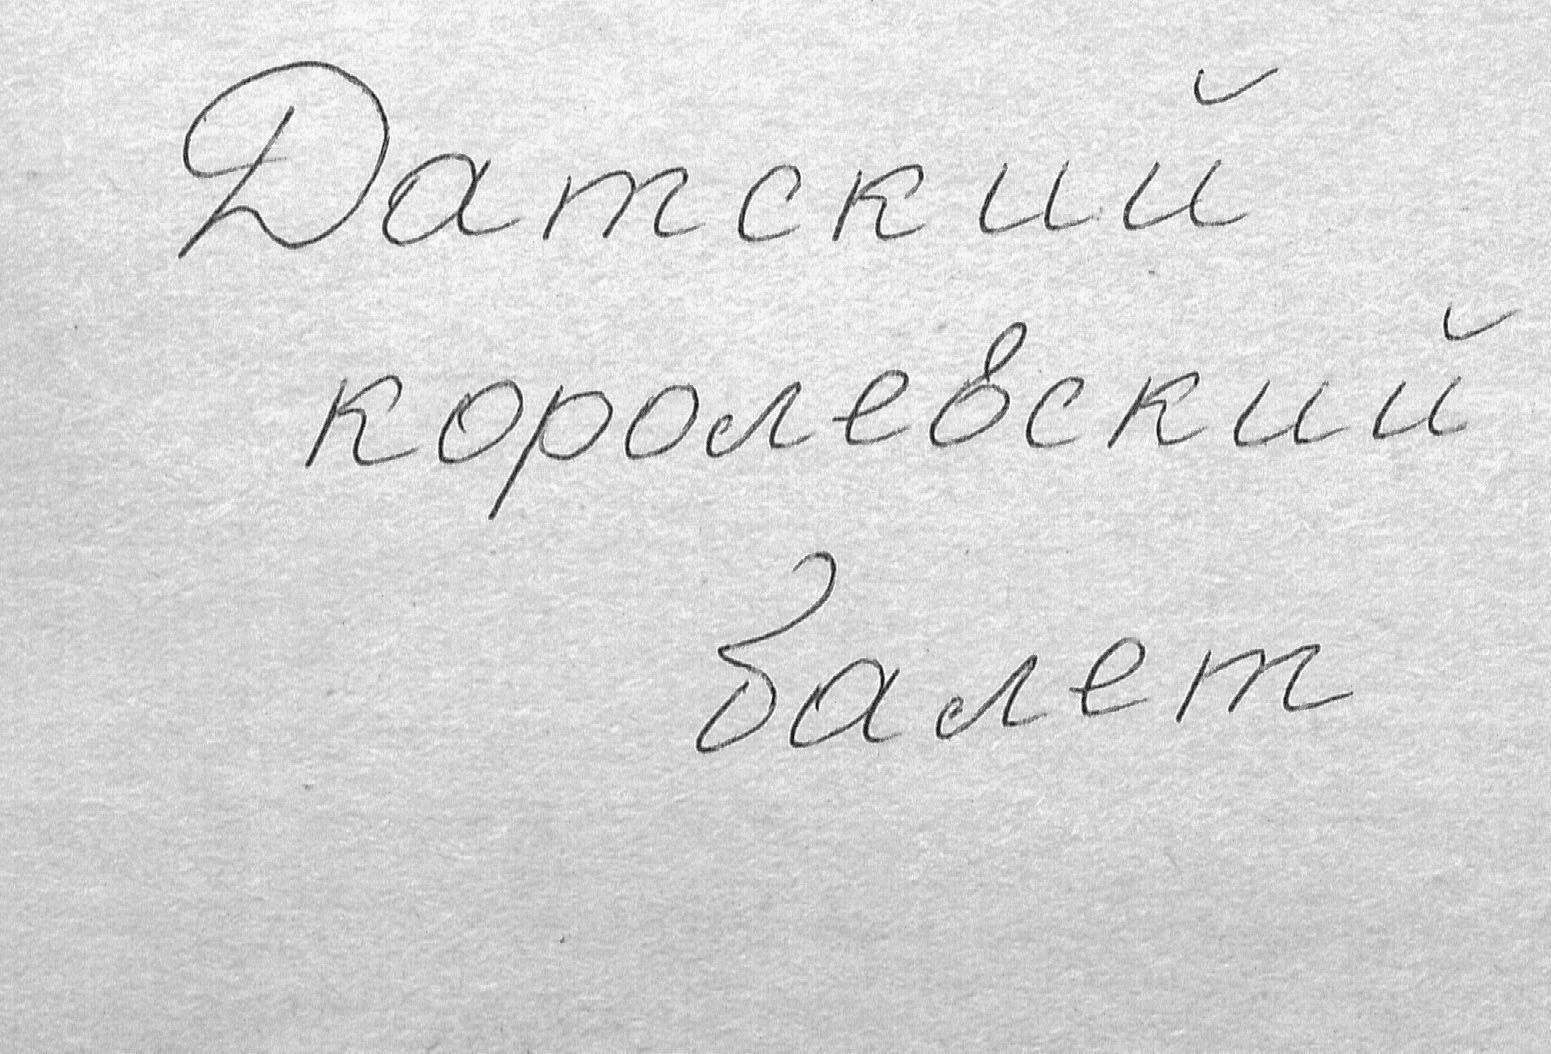 Датский
королевский
балет